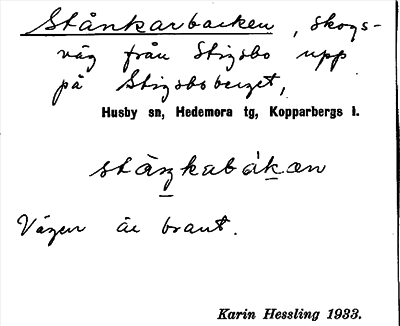 Stånkarbacken, skogs-
väg från Stigsbo upp
på Stigsboberget,
Husby sn, Hedemora tg, Kopparbergs l.
stàŋkabákæn
Vägen är brant.
Karin Hessling 1933.